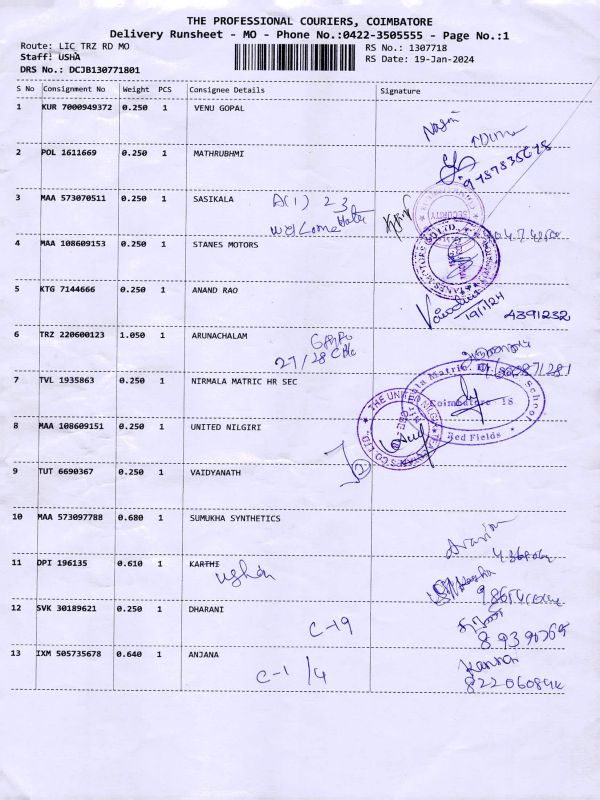 THE PROFESSIONAL COURIERS, COIMBATORE
Delivery Runsheet - MO - Phone No.:0422-3505555 - Page No.:1
Route: LIC TRZ RD MO RS No.: 1307718
Staff: USHA RS Date: 19-Jan-2024
DRS No.: DCJB130771801
S No Consignment No Weight PCS Consignee Details Signature
1 KUR 7000949372 0.250 1 VENU GOPAL
2 POL 1611669 0.250 1 MATHRUBHMI
9787835678
3 MAA 573070511 0.250 1 SASIKALA A(1) 23
Welcome
SECURITY
4 MAA 108609153 0.250 1 STANES MOTORS
5 KTG 7144666 0.250 1 ANAND RAO
19/1/24 4391232
6 TRZ 220600123 1.050 1 ARUNACHALAM
27/28
7 TVL 1935863 0.250 1 NIRMALA MATRIC HR SEC
Coimbatore 18
Red Fields
School
8 MAA 108609151 0.250 1 UNITED NILGIRI
THE UNITED NILGIRI TEA ESTATES CO LTD.,
9 TUT 6690367 0.250 1 VAIDYANATH
10 MAA 573097788 0.680 1 SUMUKHA SYNTHETICS
11 DPI 196135 0.610 1 KARTHI
12 SVK 30189621 0.250 1 DHARANI
C-19
13 IXM 505735678 0.640 1 ANJANA
C-1/4